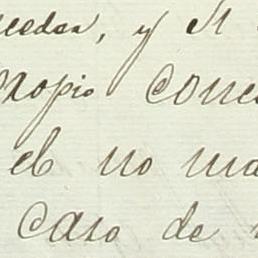 ceedan, y el
propio conce
el no ma
caso de